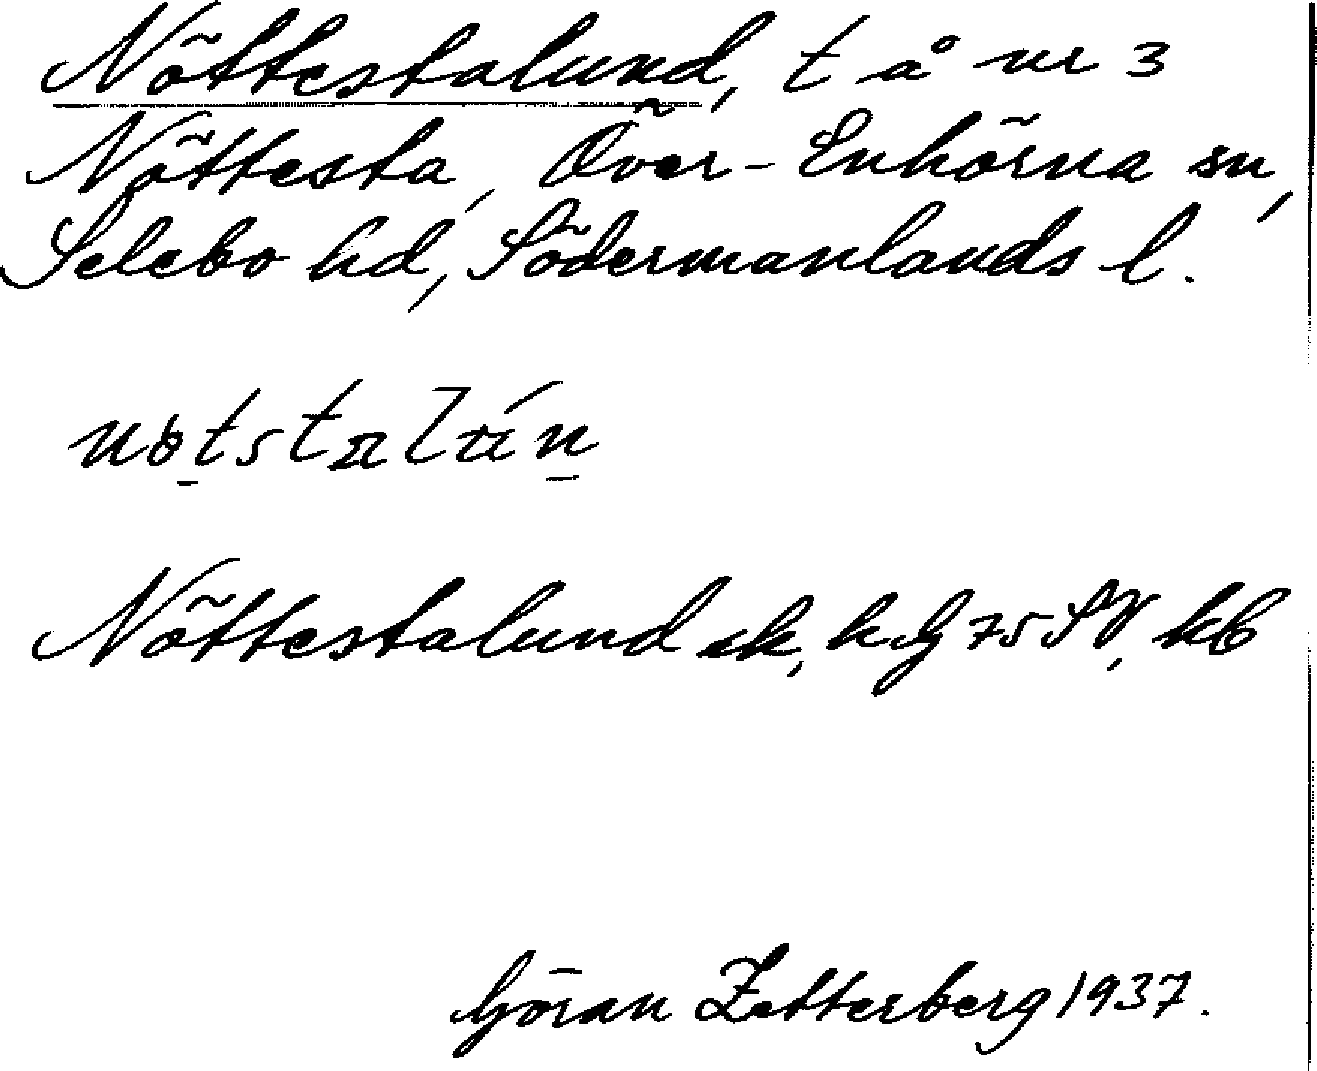 Nöttestalund, t å nr 3
Nöttesta, Över-Enhörna sn,
Selebo hd, Södermanlands l.
Nöttestalund ek, hG 75 SV, kb
Göran Zetterberg 1937.